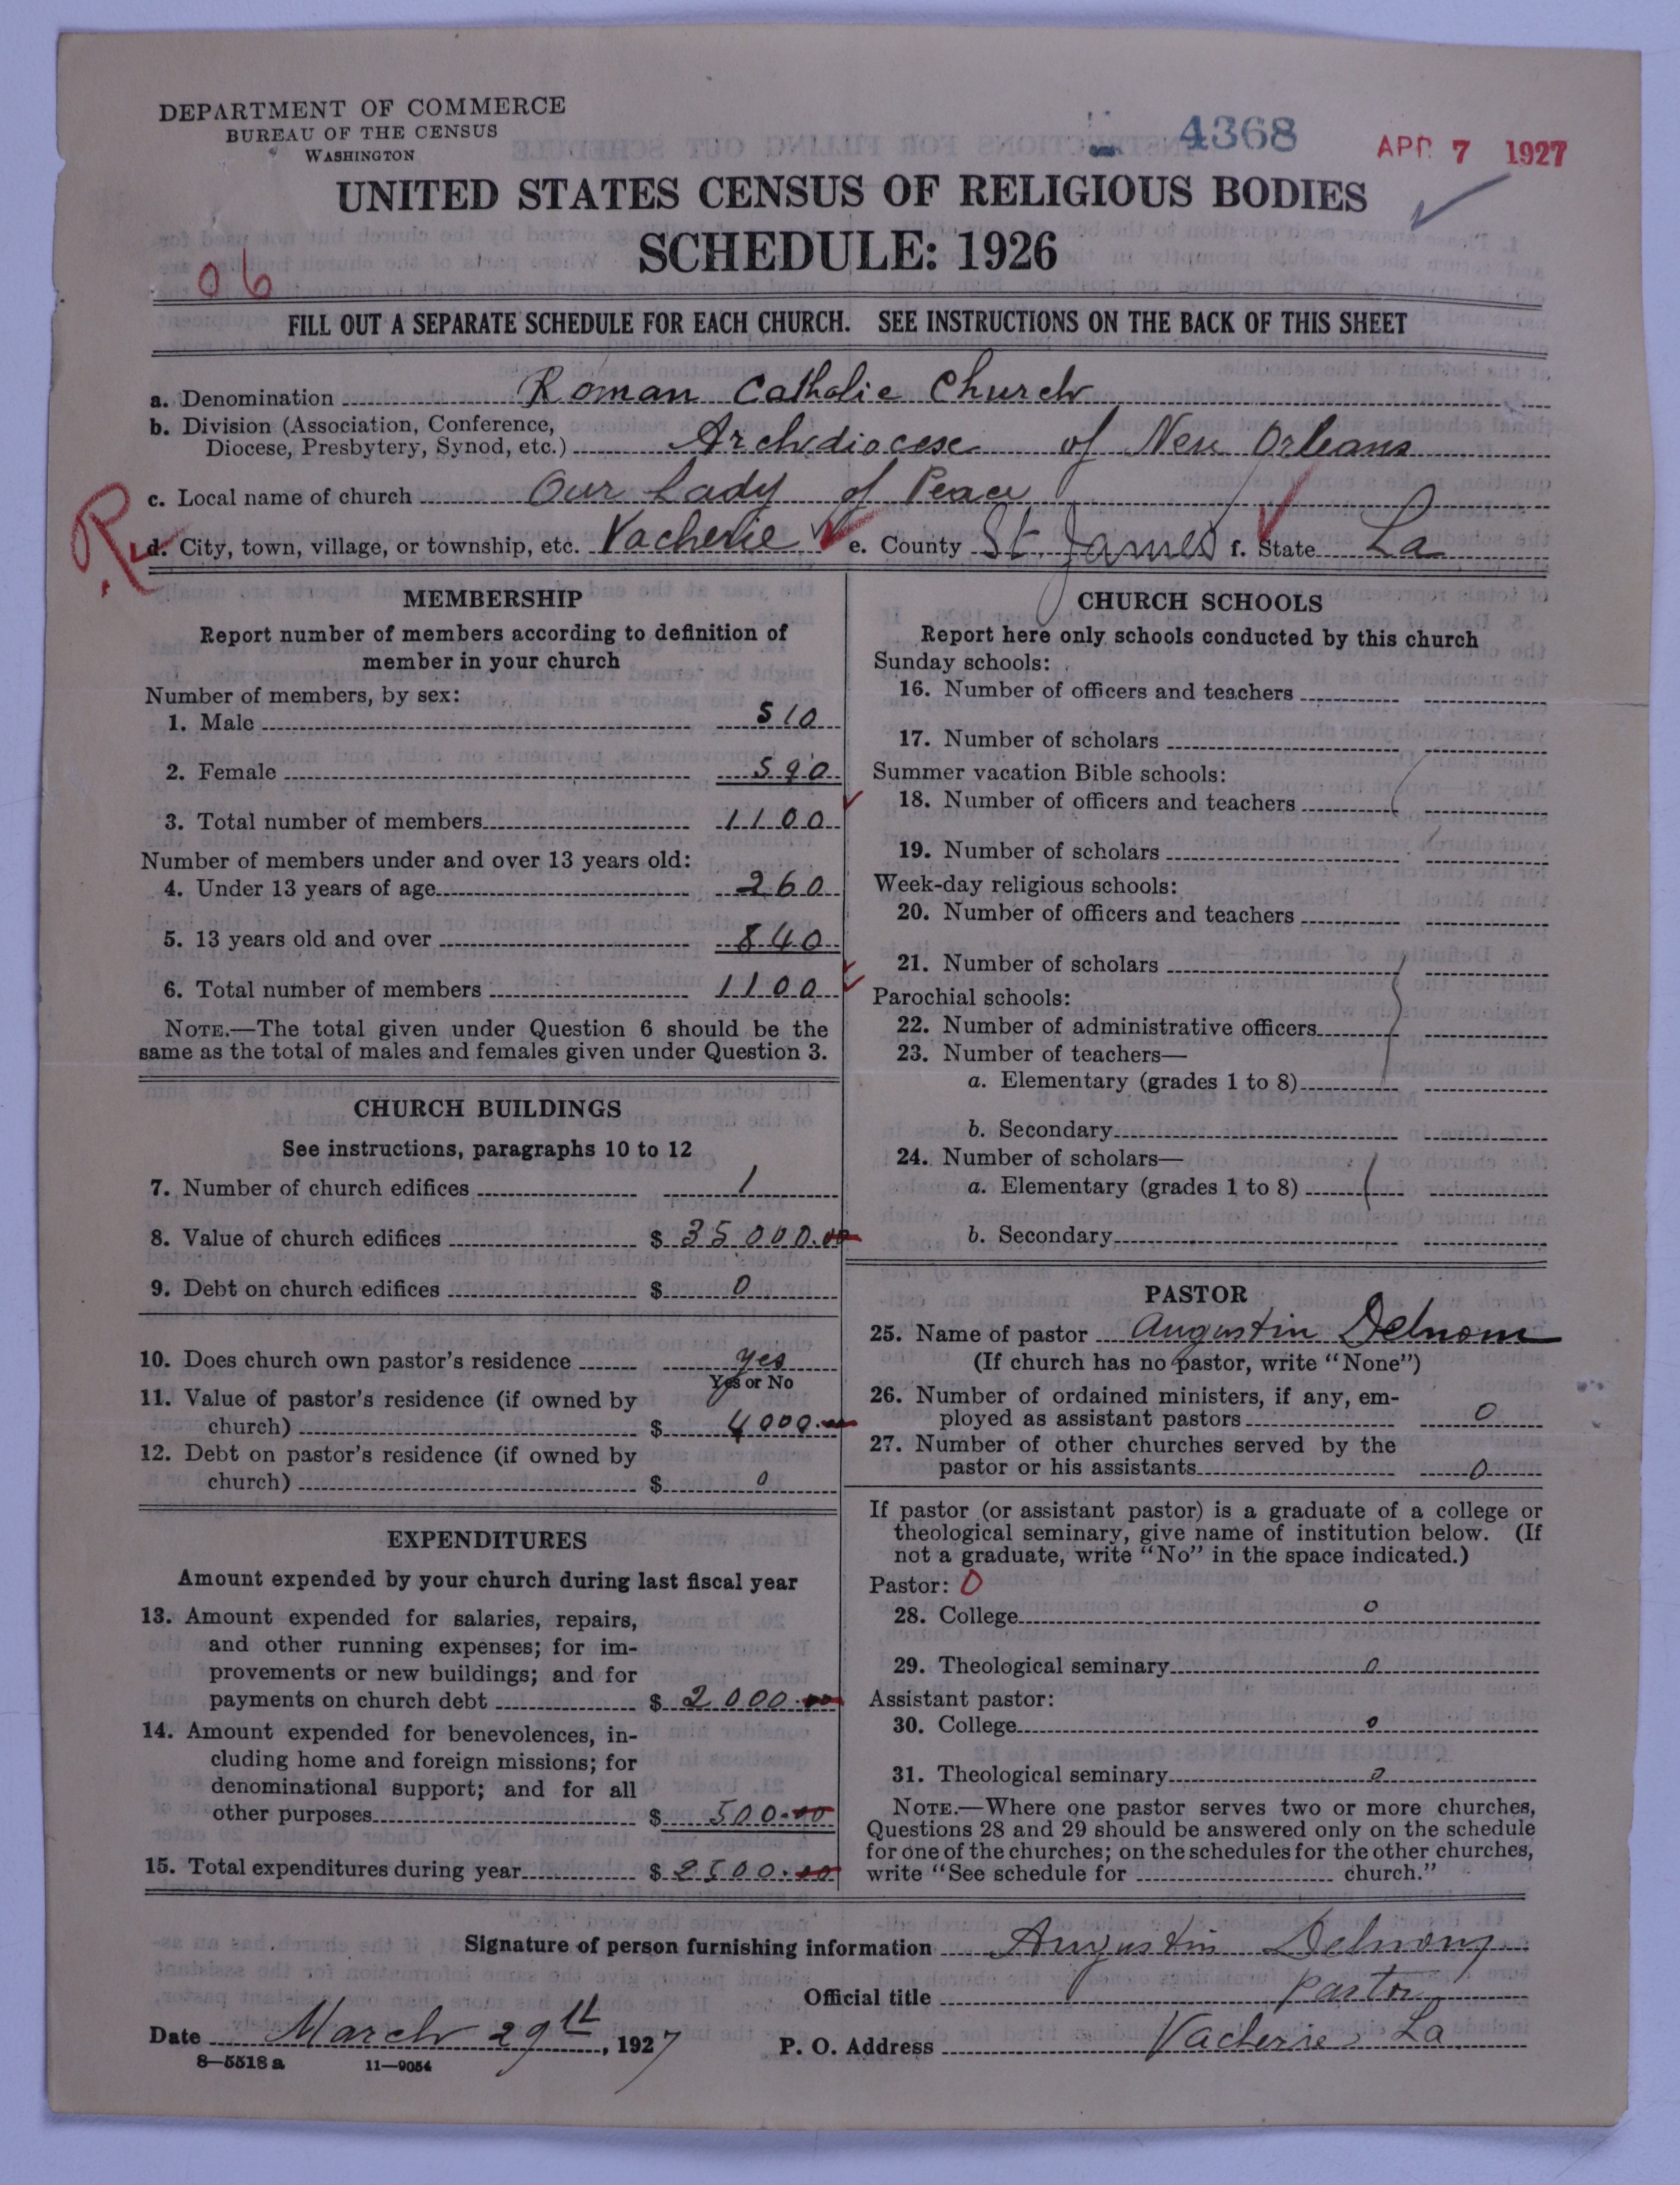 DEPARTMENT OF COMMERCE
BUREAU OF THE CENSUS
WASHINGTON
4368
APR 7 1927
UNITED STATES CENSUS OF RELIGIOUS BODIES
SCHEDULE: 1926
06
FILL OUT A SEPARATE SCHEDULE FOR EACH CHURCH. SEE INSTRUCTIONS ON THE BACK OF THIS SHEET
a. Denomination Roman Catholic Church
b. Division (Association, Conference,
Diocese, Presbytery, Synod, etc.) Archdiocese of New Orleans
c. Local name of church Our Lady of Peace
R
d. City, town, village, or township, etc. Vacherie e. County St. James f. State La
MEMBERSHIP
Report number of members according to definition of
member in your church
Number of members, by sex:
1. Male 510
2. Female 590
3. Total number of members 1100
Number of members under and over 13 years old:
4. Under 13 years of age 260
5. 13 years old and over 840
6. Total number of members 1100
NOTE.—The total given under Question 6 should be the
same as the total of males and females given under Question 3.
CHURCH BUILDINGS
See instructions, paragraphs 10 to 12
7. Number of church edifices 1
8. Value of church edifices $ 35000.00
9. Debt on church edifices $ 0
10. Does church own pastor's residence yes
Yes or No
11. Value of pastor's residence (if owned by
church) $ 4000.
12. Debt on pastor's residence (if owned by
church) $ 0
EXPENDITURES
Amount expended by your church during last fiscal year
13. Amount expended for salaries, repairs,
and other running expenses; for im-
provements or new buildings; and for
payments on church debt $ 2000.00
14. Amount expended for benevolences, in-
cluding home and foreign missions; for
denominational support; and for all
other purposes $ 500.00
15. Total expenditures during year $ 2500.00
CHURCH SCHOOLS
Report here only schools conducted by this church
Sunday schools:
16. Number of officers and teachers
17. Number of scholars
Summer vacation Bible schools:
18. Number of officers and teachers
19. Number of scholars
Week-day religious schools:
20. Number of officers and teachers
21. Number of scholars
Parochial schools:
22. Number of administrative officers
23. Number of teachers—
a. Elementary (grades 1 to 8)
b. Secondary
24. Number of scholars—
a. Elementary (grades 1 to 8)
b. Secondary
PASTOR
25. Name of pastor Augustin
(If church has no pastor, write "None")
26. Number of ordained ministers, if any, em-
ployed as assistant pastors 0
27. Number of other churches served by the
pastor or his assistants 0
If pastor (or assistant pastor) is a graduate of a college or
theological seminary, give name of institution below. (If
not a graduate, write "No" in the space indicated.)
Pastor: 0
28. College 0
29. Theological seminary 0
Assistant pastor:
30. College 0
31. Theological seminary 0
NOTE.—Where one pastor serves two or more churches,
Questions 28 and 29 should be answered only on the schedule
for one of the churches; on the schedules for the other churches,
write "See schedule for church."
Signature of person furnishing information Augustin
Official title pastor
Date March 29th, 1927 P. O. Address Vacherie La
8—5518 a 11—9054